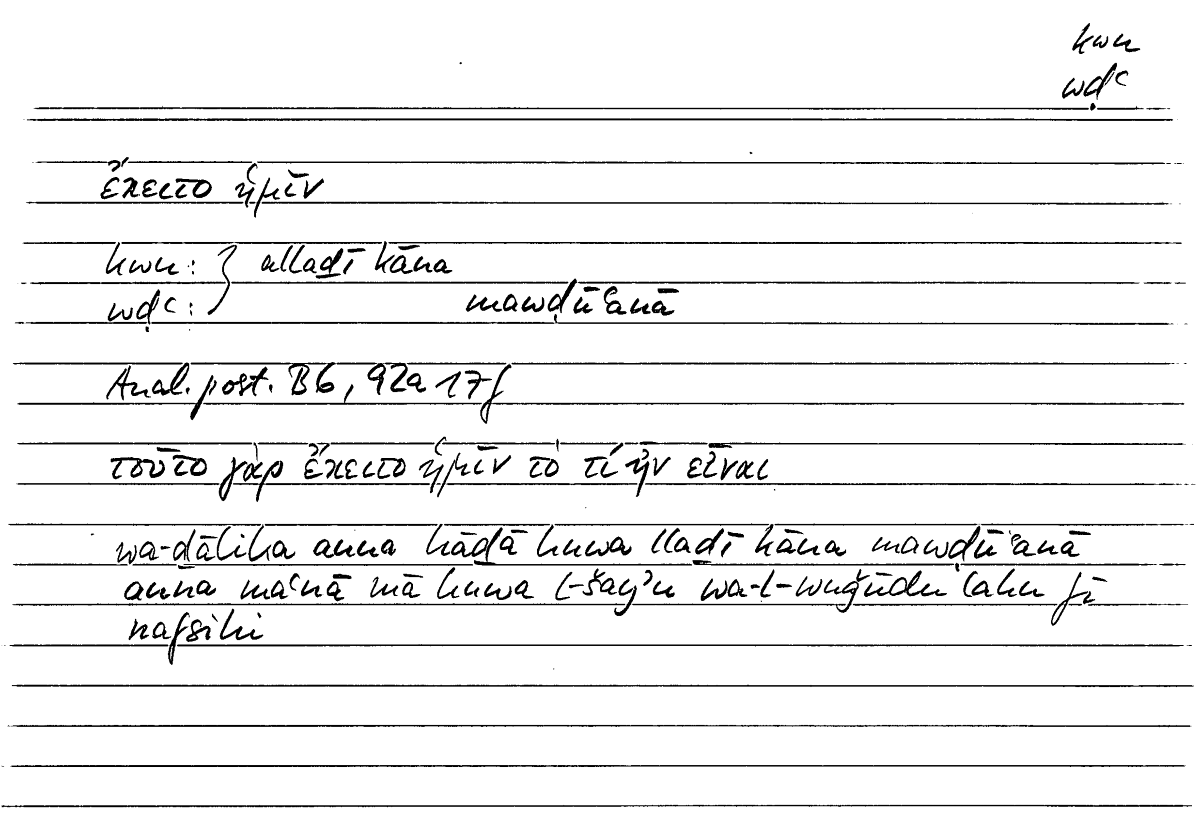 kwn
wḍʿ
ἔκειτο ἡμῖν
kwn: } allaḏī kāna
wḍʿ: mawḍūʿanā
Anal. post. B6, 92a 17f
τοῦτο γὰρ ἔκειτο ἡμῖν τὸ τί ἦν εἶναι
wa-ḏālika anna hāḏā huwa llaḏī kāna mawḍūʿanā
anna maʿnā mā huwa l-šayʾu wa-l-wuǧūdu lahu fī
nafsihi